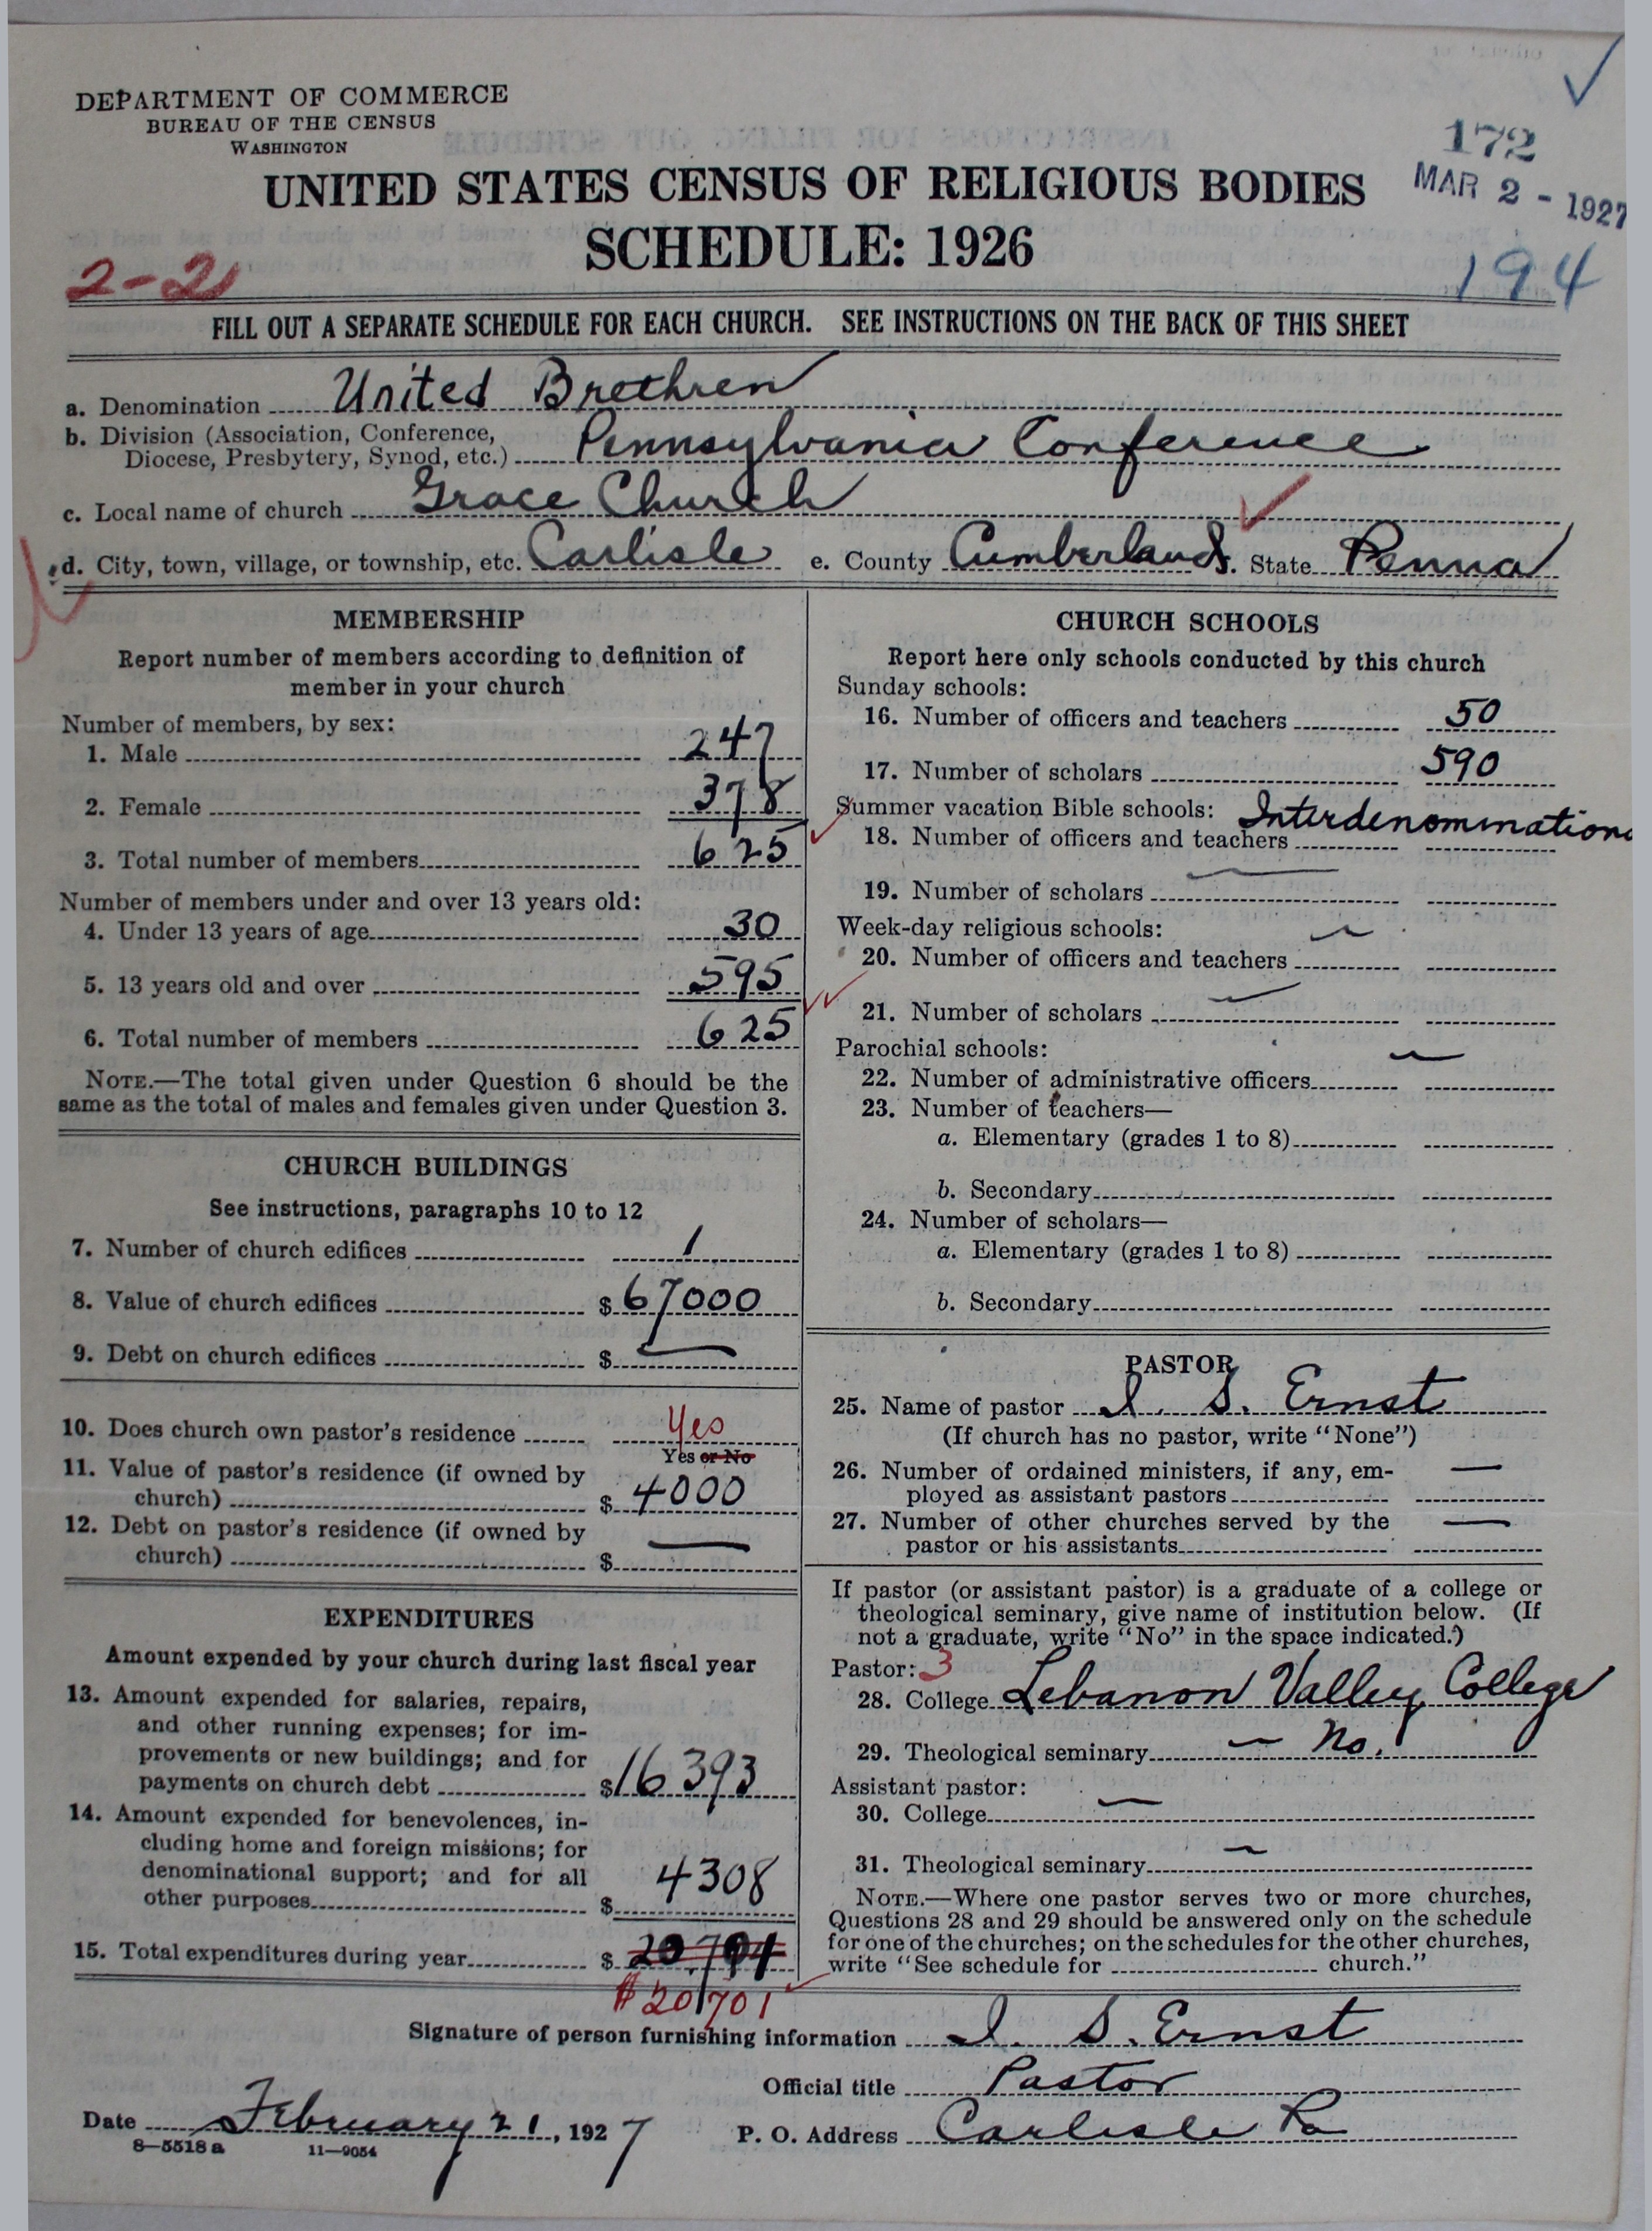 DEPARTMENT OF COMMERCE
BUREAU OF THE CENSUS
WASHINGTON
172
MAR 2 - 1927
UNITED STATES CENSUS OF RELIGIOUS BODIES
SCHEDULE: 1926
2-21
194
FILL OUT A SEPARATE SCHEDULE FOR EACH CHURCH. SEE INSTRUCTIONS ON THE BACK OF THIS SHEET
a. Denomination United Brethren
b. Division (Association, Conference,
Diocese, Presbytery, Synod, etc.) Pennsylvania Conference
c. Local name of church Grace Church
d. City, town, village, or township, etc. Carlisle e. County Cumberland f. State Penna
MEMBERSHIP
Report number of members according to definition of
member in your church
Number of members, by sex:
1. Male 247
2. Female 378
3. Total number of members 625
Number of members under and over 13 years old:
4. Under 13 years of age 30
5. 13 years old and over 595
6. Total number of members 625
NOTE.—The total given under Question 6 should be the
same as the total of males and females given under Question 3.
CHURCH BUILDINGS
See instructions, paragraphs 10 to 12
7. Number of church edifices 1
8. Value of church edifices $ 67000
9. Debt on church edifices $ —
10. Does church own pastor's residence Yes
Yes or No
11. Value of pastor's residence (if owned by
church) $ 4000
12. Debt on pastor's residence (if owned by
church) $ —
EXPENDITURES
Amount expended by your church during last fiscal year
13. Amount expended for salaries, repairs,
and other running expenses; for im-
provements or new buildings; and for
payments on church debt $ 16393
14. Amount expended for benevolences, in-
cluding home and foreign missions; for
denominational support; and for all
other purposes $ 4308
15. Total expenditures during year $
$20701
CHURCH SCHOOLS
Report here only schools conducted by this church
Sunday schools:
16. Number of officers and teachers 50
17. Number of scholars 590
Summer vacation Bible schools: Interdenominationa
18. Number of officers and teachers
19. Number of scholars —
Week-day religious schools: —
20. Number of officers and teachers
21. Number of scholars —
Parochial schools: —
22. Number of administrative officers
23. Number of teachers—
a. Elementary (grades 1 to 8)
b. Secondary
24. Number of scholars—
a. Elementary (grades 1 to 8)
b. Secondary
PASTOR
25. Name of pastor I. S. Ernst
(If church has no pastor, write "None")
26. Number of ordained ministers, if any, em-
ployed as assistant pastors —
27. Number of other churches served by the
pastor or his assistants —
If pastor (or assistant pastor) is a graduate of a college or
theological seminary, give name of institution below. (If
not a graduate, write "No" in the space indicated.)
Pastor: 3
28. College Lebanon Valley College
29. Theological seminary — No.
Assistant pastor:
30. College —
31. Theological seminary —
NOTE.—Where one pastor serves two or more churches,
Questions 28 and 29 should be answered only on the schedule
for one of the churches; on the schedules for the other churches,
write "See schedule for church."
Signature of person furnishing information I. S. Ernst
Official title Pastor
Date February 21, 1927 P. O. Address Carlisle Pa
8—5518 a 11—9054